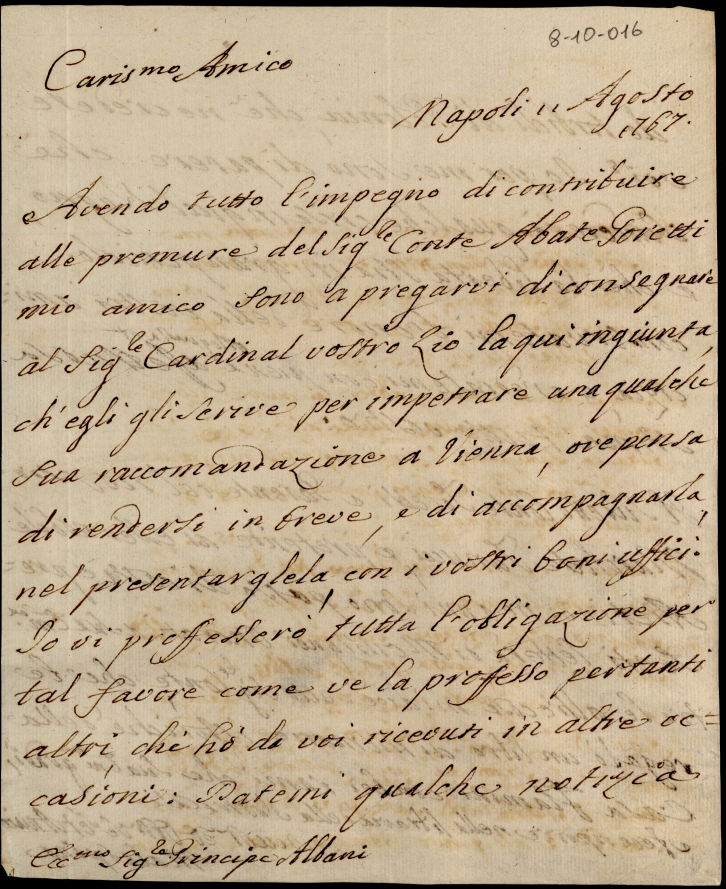 8-10-016
Caris.mo Amico
Napoli 11 Agosto
1767.
Avendo tutto l'impegno di contribuire
alle premure del Sig.le Conte Abate Poretti
mio amico sono a pregarvi di consegnare
al Sig.le Cardinal vostro Zio la qui ingiunta,
ch'egli gli scrive per impetrare una qualche
sua raccomandazione a Vienna, ove pensa
di rendersi in breve, e di accompagnarla,
nel presentarglela, con i vostri boni uffici.
Io vi professerò tutta l'obligazione per
tal favore come ve la professo per tanti
altri, che hò da voi ricevuti in altre oc=
casioni: Datemi qualche notizia
Ecc.mo Sig.le Principe Albani